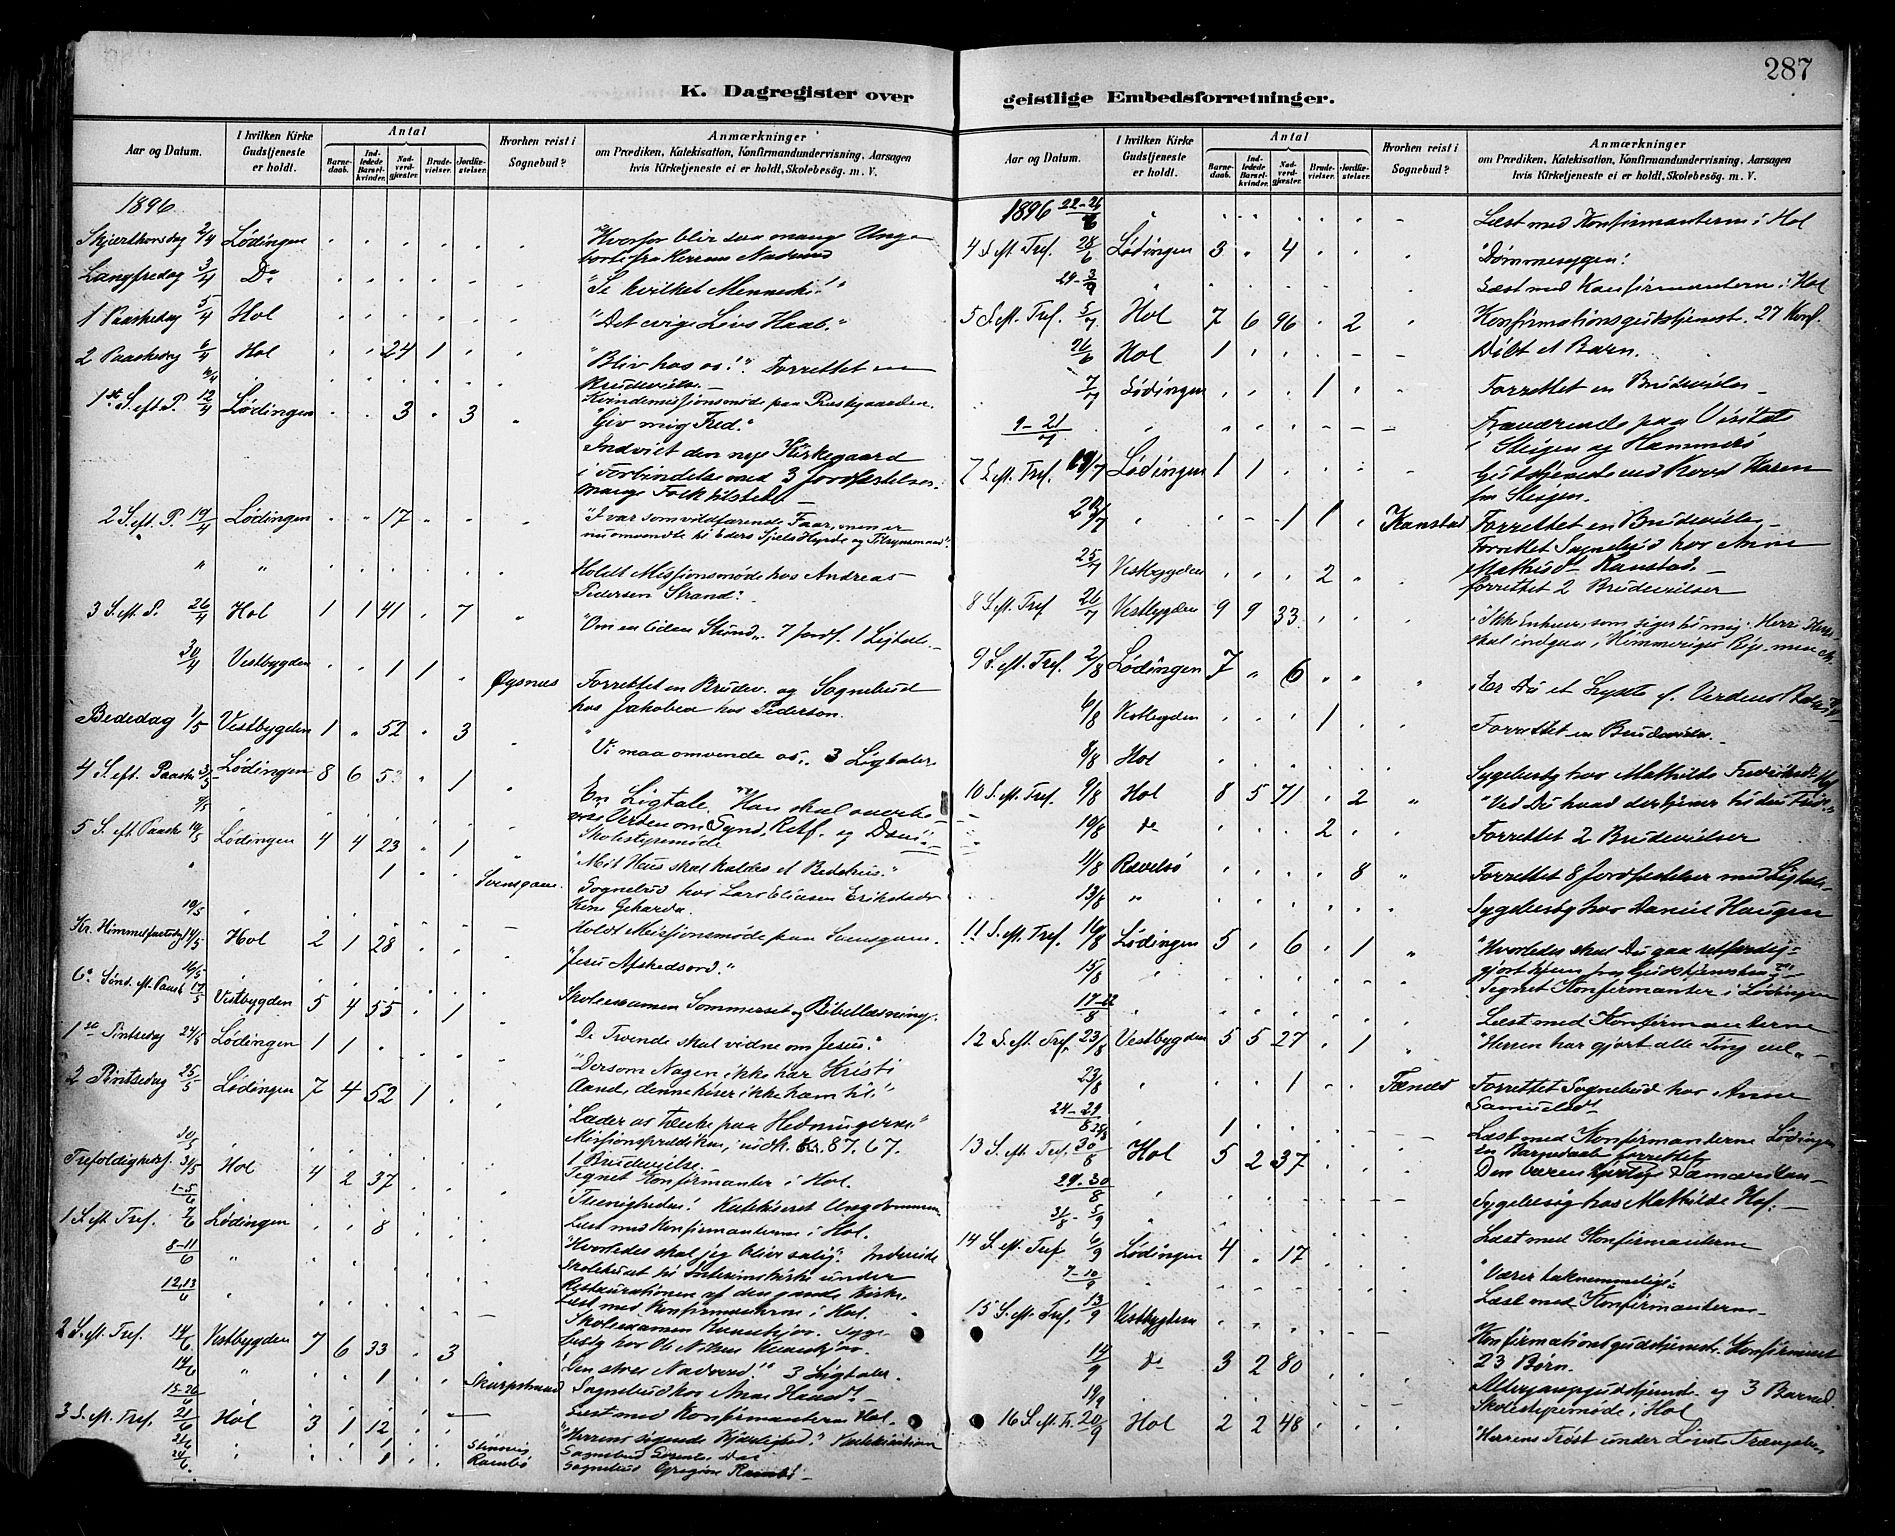 287
K. Dagregister over
Aar og Datum.
I hvilken Kirke Gudstjeneste er holdt.
Antal
Barnedaab.
Indledede Barselkvinder.
Nadverdgjæster.
Brudevielser.
Jordfæstelser.
Hvorhen reist i Sognebud?
Anmærkninger
om Prædiken, Katekisation, Konfirmandundervisning, Aarsagen
hvis Kirketjeneste ei er holdt, Skolebesøg. m. V.
1896
Skjærthorsdag 2/4 Lødingen "Hvorfor blir saa mange Unge
borte fra Herrens Nadverd
Langfredag 3/4 Do "Se hvilket Menneske!"
1 Paaskedag 5/4 Hol "Det evige Livs Haab."
2 Paaskedag 6/4 Hol 24 1 "Bliv hos os!" Forrettet en
Brudevielse.
Kvindemissionsmøde paa Præstgaarden.
1ste S. eft. P. 12/4 Lødingen 3 3 "Giv mig Fred."
Indviet den nye Kirkegaard
i Forbindelse med 3 Jordfæstelser.
mange Folk tilstede.
2 S. eft. P. 19/4 Lødingen 17 "I var som vildfarende Faar, men er
nu omvendte til Eders Sjels Hyrde og Tilsynsmand".
" " Holdt Missionsmøde hos Andreas
Pedersen Strand.
3 S. eft. P. 26/4 Hol 1 1 41 7 "Om en liden Stund". 7 Jordf. 1 Ligtale.
30/4 Vestbygden 1 1 Øgsnæs Forrettet en Brudev. og Sognebud
hos Jakobea hos Pederson.
Bededag 1/5 Vestbygden 1 " 52 3 "Vi maa omvende os". 3 Ligtaler
4 S. eft. Paaske 3/5 Lødingen 8 6 5 1 En Ligtale "Han skal overbe-
vise Verden om Synd, Retf. og Dom"
Skolestyremøde
5 S. eft. Paaske 10/5 Lødingen 4 4 23 1 "Mit Hus skal kaldes et Bedehus."
" 1 Svensgam. Sognebud hos Lars Eliasen Erikstads
Kone Geharda.
10/5 " Holdt Missionsmøde paa Svensgam.
Kr. Himmelfartsdag 14/5 Hol 2 1 28 "Jesu Afskedsord."
16/5 Skoleexamen Sommerset og Bibellæsning.
6te Sønd. eft. Paaske 17/5 Vestbygden 5 4 55 1 "De Tvende skal vidne om Jesus."
1ste Pintsedag 24/5 Lødingen 1 1 "Dersom Nogen ikke har Kristi
Aand, denne hører ikke ham til."
2 Pintsedag 25/5 Lødingen 7 4 52 1 "Lader os tænke paa Hedningerne"
Missionsprædiken, indk. kr. 87.67.
1 Brudevielse.
30/5 Tegnet Konfirmanter i Hol.
Trefoldighedsf. 31/5 Hol 4 2 37 "Treenigheden! Katekiseret Ungdommen
1-5/6 Læst med Konfirmanterne i Hol.
1 S. eft. Tref. 7/6 Lødingen 8 "Hvorledes skal jeg blive salig". Indviede
Skolehuset til Interimskirke under
Restaurationen af den gamle Kirke.
8-11/6 " Læst med Konfirmanterne i Hol.
12,13/6 " Skoleexamen
besøg hos Ole Nilsen
2 S. eft. Tref. 14/6 Vestbygden 7 6 33 3 "Den store Nadverd." 3 Ligtaler.
14/6 " 1 Skarpstrand Sognebud hos Anne
15-20/6 Læst med Konfirmanterne Hol.
3 S. eft. Tref. 21/6 Hol 3 1 12 "Herrens søgende Kjærlighed." Katekisation
21/6 " 1 Sognebud
24/6 1 Rambø Sognebud Rambø
geistlige Embedsforretninger.
Aar og Datum.
I hvilken Kirke Gudstjeneste er holdt.
Antal
Barnedaab.
Indledede Barselkvinder.
Nadverdgjæster.
Brudevielser.
Jordfæstelser.
Hvorhen reist i Sognebud?
Anmærkninger
om Prædiken, Katekisation, Konfirmandundervisning, Aarsagen
hvis Kirketjeneste ei er holdt, Skolebesøg. m. V.
1896 22-26/6 " Læst med Konfirmanterne i Hol
4 S. eft. Tref. 28/6 Lødingen 3 " 4 "Dømmesygen!
29-3/ " Læst med Konfirmanterne i Hol
5 S. eft. Tref. 5/7 Hol 7 6 96 2 Konfirmationsgudstjenest. 27 Konf.
26/6 Hol 1 Døbt et Barn.
7/7 Lødingen 1 Forrettet en Brudevielse
9-21/7 " Fraværende paa Visitats
i Steigen og Hammerø
7 S. eft. Tref. 19/7 Lødingen 1 1 Gudstjeneste ved
fra Steigen.
/7 " 1 1 Kanstad Forrettet en Brudevielse
Forrettet Sognebud hos Anne
Mathisd. Kanstad.
25/7 Vestbygden 2 forrettet 2 Brudevielser
8 S. eft. Tref 26/7 Vestbygden 9 9 33 "Ikke Enhver, som siger til mig: Herre Herre
skal indgaa i Himmeriges Rige, men
9 S. eft. Tref. 2/8 Lødingen 7 " 6 "Er Du et Lys f. Verden
6/8 Vestbygden 1 Forrettet en Brudevielse.
8/8 Hol Sygebesøg hos Mathilde Fredriksd. Hol
10 S. eft. Tref. 9/8 Hol 8 5 71 2 "Ved Du hvad der tjener til din Fred"
10/8 do 2 Forrettet 2 Brudevielser
11/8 8 Forrettet 8 Jordfæstelser med Ligtale
13/8 " Sygebesøg hos Daniel Haugen
11 S. eft. Tref. 16/8 Lødingen 5 6 1 "Hvorledes skal Du gaa retfærdig-
gjort hjem fra Gudstjenesten?"
15/8 " Tegnet Konfirmanter i Lødingen
17-22/8 Læst med Konfirmanterne
12 S. eft. Tref. 23/8 Vestbygden 5 5 27 1 "Herren har gjort alle Ting vel"
23/8 " 1 Forrettet Sognebud hos Anne
Samuelsd.
24-29/8 " Læst med Konfirmanterne Lødingen
1 En Barnedaab forrettet
13 S. eft. Tref. 30/8 Hol 5 2 37 Den barmhjertige Samaritan
29-30/8 " Sygebesøg hos Mathilde Hol.
31/8 - 5/9 " Læst med Konfirmanterne
14 S. eft. Tref 6/9 Lødingen 4 " 17 "Værer taknemmelige!"
7-10/9 " Læst med Konfirmanterne
15 S. eft. Tref. 13/9 Vestbygden Konfirmationsgudstjeneste. Konfirmeret
23 Børn.
14/9 do 3 2 80 Altergangsgudstjeneste og 3 Barned
19/9 Skolestyremøde i Hol
16 S. eft. Tr. 20/9 Hol 2 2 48 "Herrens Trøst under Livets Trængsler